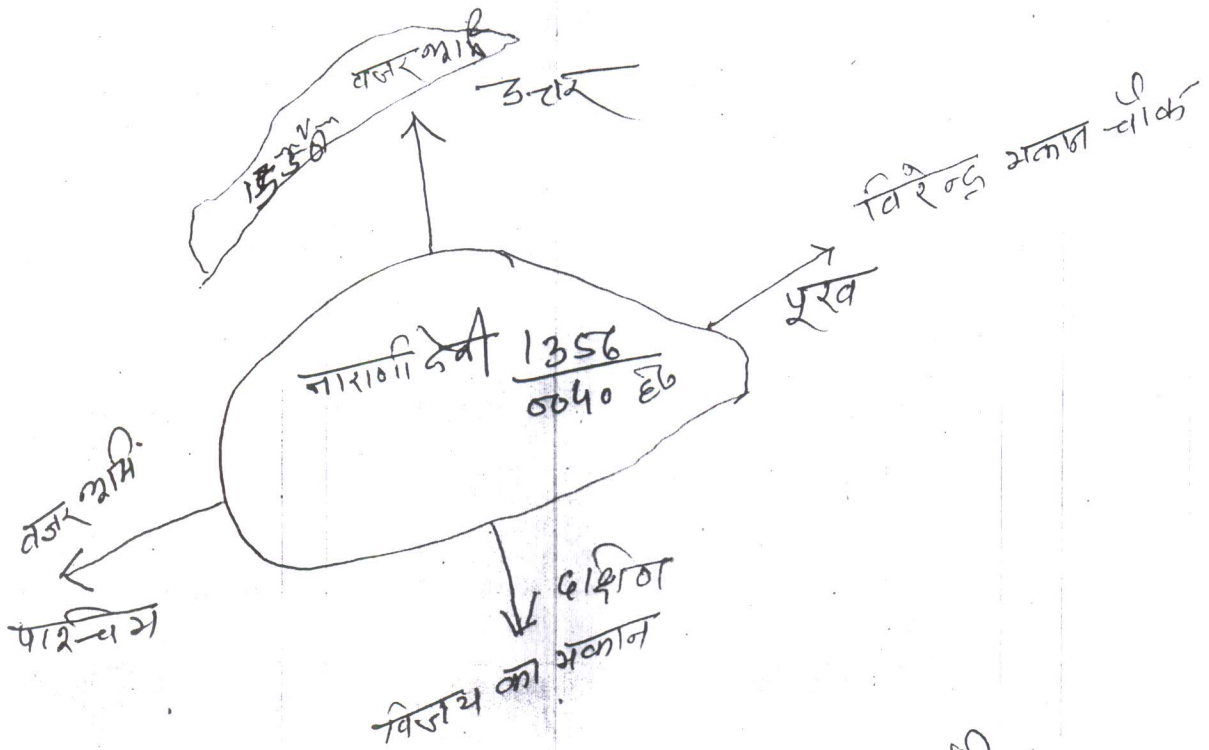 बंजर भूमि
उत्तर
विरेन्द्र मकान चौक
पूरव
नारणी देवी 1356
0040 हे०
बंजर भूमि
पश्चिम
दक्षिण
विजय का मकान